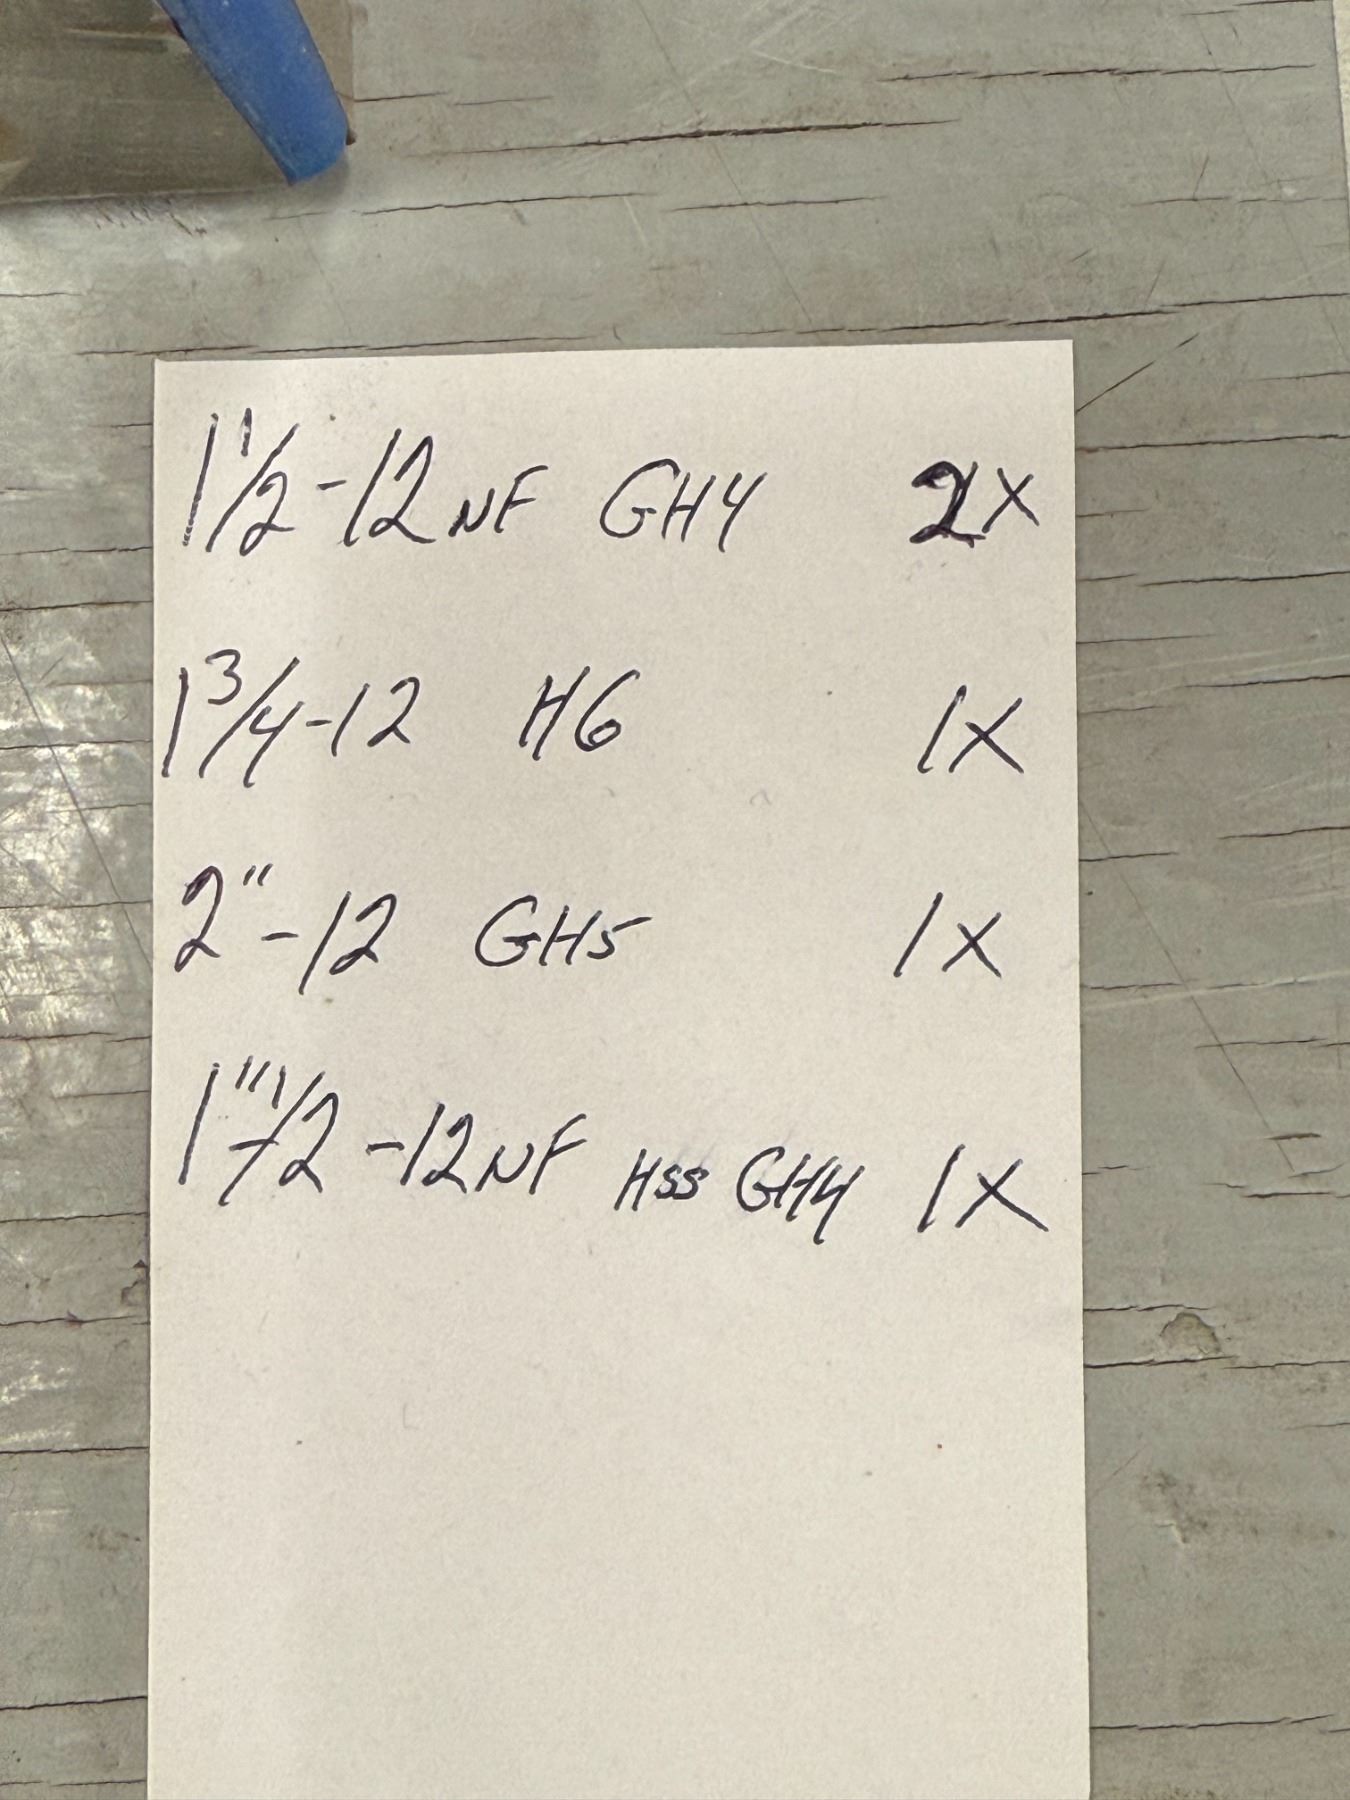 1 1/2-12 NF GH4 2X
1 3/4-12 H6 1X
2"-12 GH5 1X
1" 1/2-12 NF HSS GH4 1X